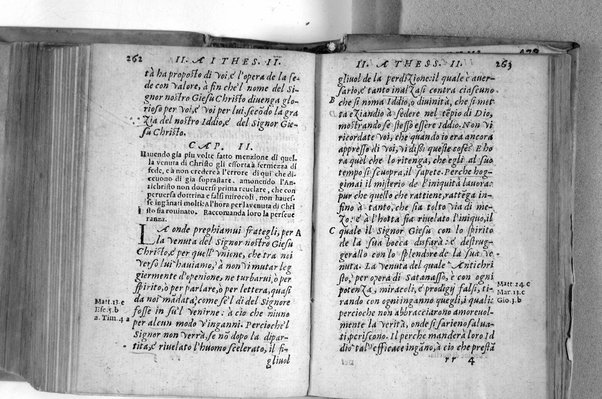 262 II. A I THES. II.
tà ha proposto di voi, e l'opera de la fe-
de con valore, à fin che'l nome del Si
gnor nostro Giesu Christo diuenga glo-
rioso per voi, e voi per lui, secōdo la gra
zia del nostro Iddio, e del Signor Gie-
su Christo.
CAP. II.
Hauendo gia piu volte fatto menzione di quel-
la venuta di Christo gli essorta à fermezza di
fede, e à non credere à l'errore di qui che di-
ceuono di gia soprastare. amonendo l'An-
tichristo non douersi prima reuelare, che con
peruersa dottrina e falsi miracoli, non haues-
se ingānati molti: e l'hora per la venuta di Chri
sto sia rouinato. Raccomanda loro la perseue
ranza.
LA onde preghiamui frategli, per A
la venuta del Signor nostro Giesu
Christo, e per quell'vnione, che tra noi
verso lui hauiamo, à non vi mutar leg
giermente d'openione, ne turbarui, ò per
spirito, ò per parlare, ò per lettera, quasi
Matt 13 c da noi mādata; come se'l dì del Signore
Efe. 5. b fosse in sù'l venirne. à ciò che niuno
2. Tim. 4 a per alcun modo v'inganni. Percioche'l
Signor non verrà, se nō dopo la dipar-
tita, e riuelato l'huomo scelerato, il fi-
gliuol
II. A THESS. II. 263
gliuol de la perdizione: il quale è auer-
sario, e tanto inalzasi contra ciascuno
B che si noma Iddio, ò diuinità, che si met
ta eziandio à sedere nel tēpio di Dio,
mostrando se stesso essere Iddio. Non vi
ricordate voi, che quando io era ancora
appresso di voi, vi dissi queste cose? E ho
ra quel che lo ritenga, che egli al suo
tempo si scuopra, il sapete. Perche hog-
gimai il misterio de l'iniquità lauora:
pur che quello che rattiene, rattēga in-
fino à tanto, che sia tolto via di me-
zo: e à l'hotta sia riuelato l'iniquo, il
C quale il Signor Giesu con lo spirito
de la sua bocca disfarà: e destrug-
gerallo con lo splendore de la sua ve
nuta. La venuta del quale Antichri
sto, e per opera di Satanasso, e con ogni
potenza, miracoli, e prodigy falsi, ti- Matt. 24. C
rando con ogni inganno quegli, à quali; Mar. 13. C
percioche non abbracciarono amoreuol- Gio. 3. b
mente la verità, onde si farieno salua-
ti, periscono. Il perche manderà loro Id
dio tal'efficace ingāno, à ciò che prestà
rr 4